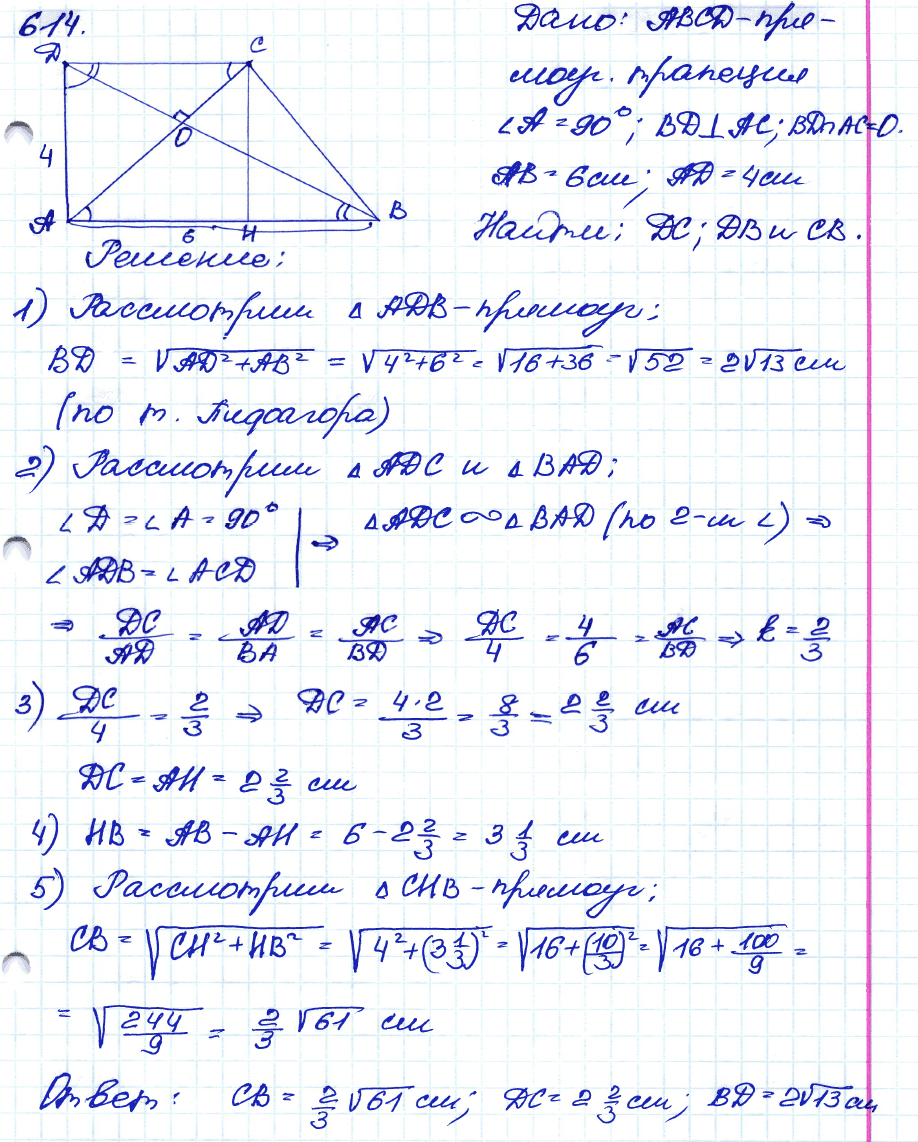 614.
D C
O
4
A B
6 H
Дано: ABCD-пря-
моуг. трапеция
∠A = 90°; BD⊥AC; BD∩AC=O.
AB = 6см; AD = 4см
Найти: DC; DB и CB.
Решение:
1) Рассмотрим △ADB-прямоуг:
BD = √(AD²+AB²) = √(4²+6²) = √(16+36) = √52 = 2√13 см
(по т. Пифагора)
2) Рассмотрим △ADC и △BAD:
∠D = ∠A = 90° | ⇒ △ADC ∞ △BAD (по 2-м ∠) ⇒
∠ADB = ∠ACD
⇒ DC/AD = AD/BA = AC/BD ⇒ DC/4 = 4/6 = AC/BD ⇒ k = 2/3
3) DC/4 = 2/3 ⇒ DC = 4·2/3 = 8/3 = 2 2/3 см
DC = AH = 2 2/3 см
4) HB = AB - AH = 6 - 2 2/3 = 3 1/3 см
5) Рассмотрим △CHB-прямоуг:
CB = √(CH²+HB²) = √(4²+(3 1/3)²) = √(16+(10/3)²) = √(16+100/9) =
= √(244/9) = 2/3 √61 см
Ответ: CB = 2/3 √61 см; DC = 2 2/3 см; BD = 2√13 см